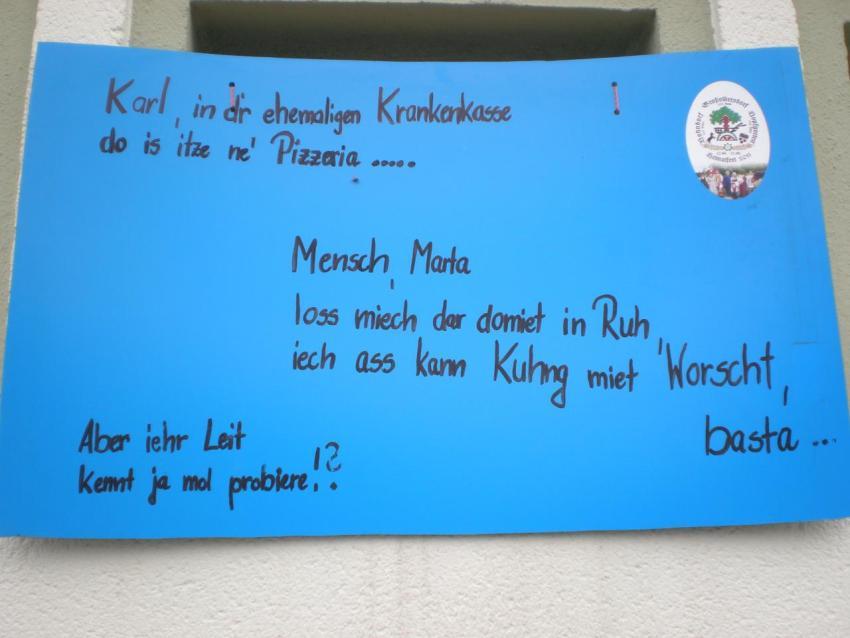 Karl, in dr ehemaligen Krankenkasse
do is itze ne' Pizzeria .....
Mensch, Marta
loss miech dar domiet in Ruh,
iech ass kann Kuhng miet Worscht,
basta ...
Aber iehr Leit
kennt ja mol probiere!?